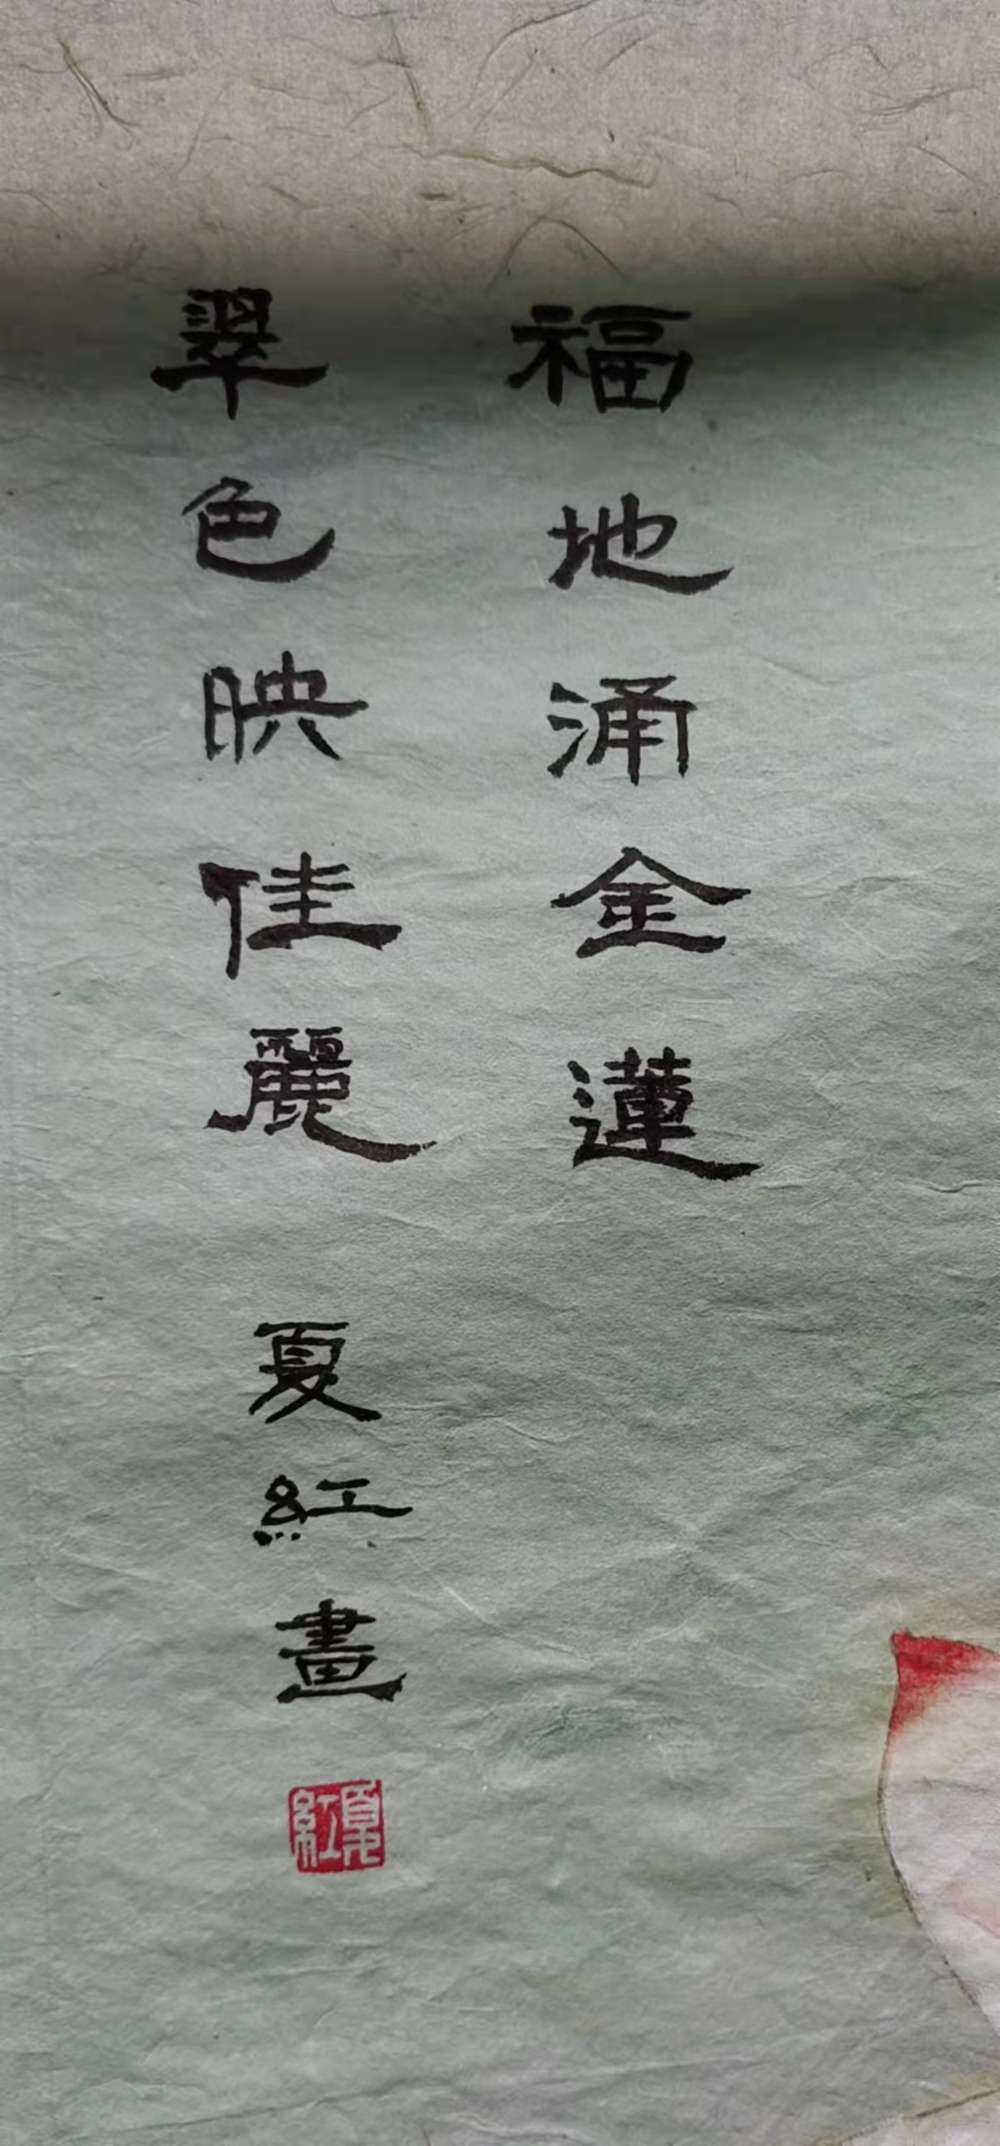 福地涌金蓮
翠色映佳麗
夏紅畫
夏紅